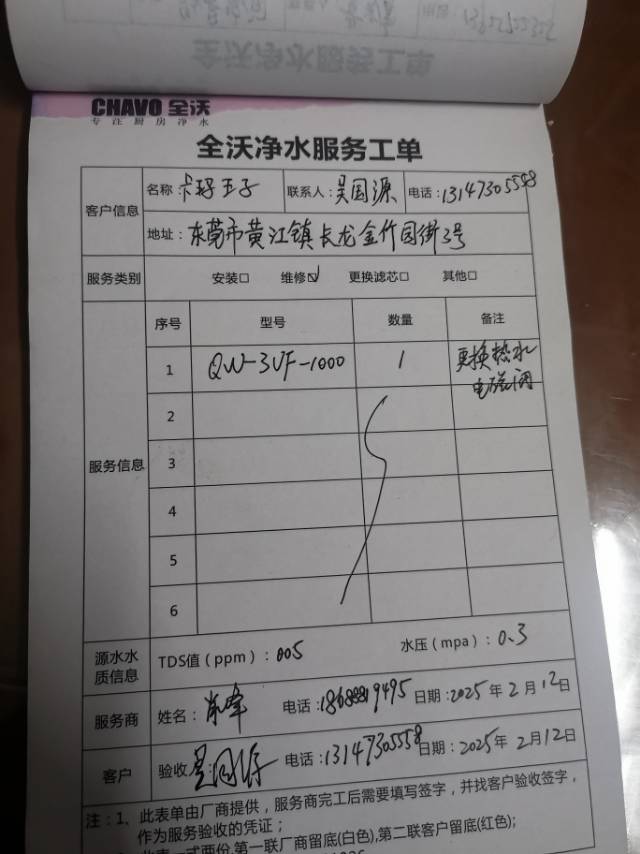 全沃净水服务工单
CHAVO 全沃
专注厨房净水
全沃净水服务工单
客户信息
名称: 卡玛王子 联系人: 吴国源 电话: 13147305558
地址: 东莞市黄江镇长龙金竹园街3号
服务类别 安装□ 维修☑ 更换滤芯□ 其他□
服务信息
序号 型号 数量 备注
1 QW-3UF-1000 1 更换热水
电磁阀
2
3
4
5
6
源水水
质信息
TDS值(ppm): 005 水压(mpa): 0.3
服务商 姓名: 电话: 日期: 2025年2月12日
客户 验收: 吴国源 电话: 13147305558 日期: 2025年2月12日
注:1、此表单由厂商提供,服务商完工后需要填写签字,并找客户验收签字,
作为服务验收的凭证;
此表一式两份,第一联厂商留底(白色),第二联客户留底(红色);